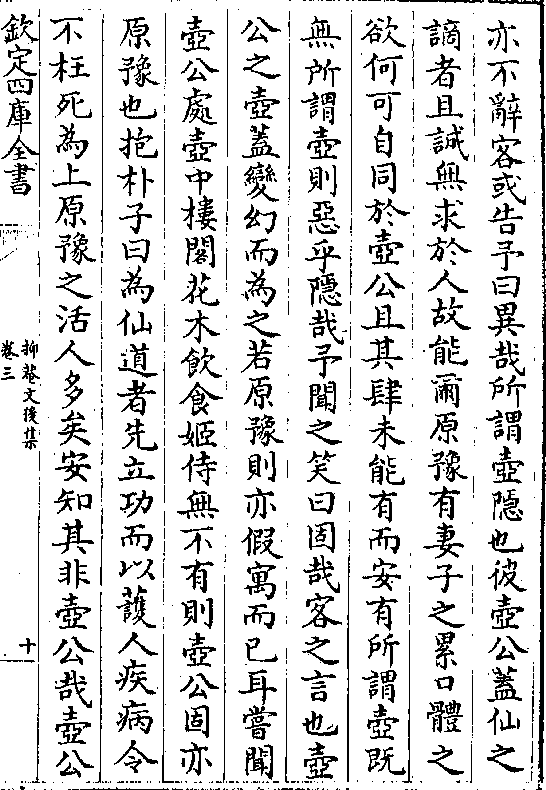 亦不辭客或告予曰異哉所謂壺隱也彼壺公蓋仙之
謫者且誠無求於人故能爾原豫有妻子之累口體之
欲何可自同於壺公且其肆未能有而安有所謂壺既
無所謂壺則惡乎隱哉予聞之笑曰固哉客之言也壺
公之壺蓋變幻而為之若原豫則亦假寓而已耳嘗聞
壺公處壺中樓閣花木飲食姬侍無不有則壺公固亦
原豫也抱朴子曰為仙道者先立功而以護人疾病令
不枉死為上原豫之活人多矣安知其非壺公哉壺公
欽定四庫全書
抑菴文後集
卷三
十